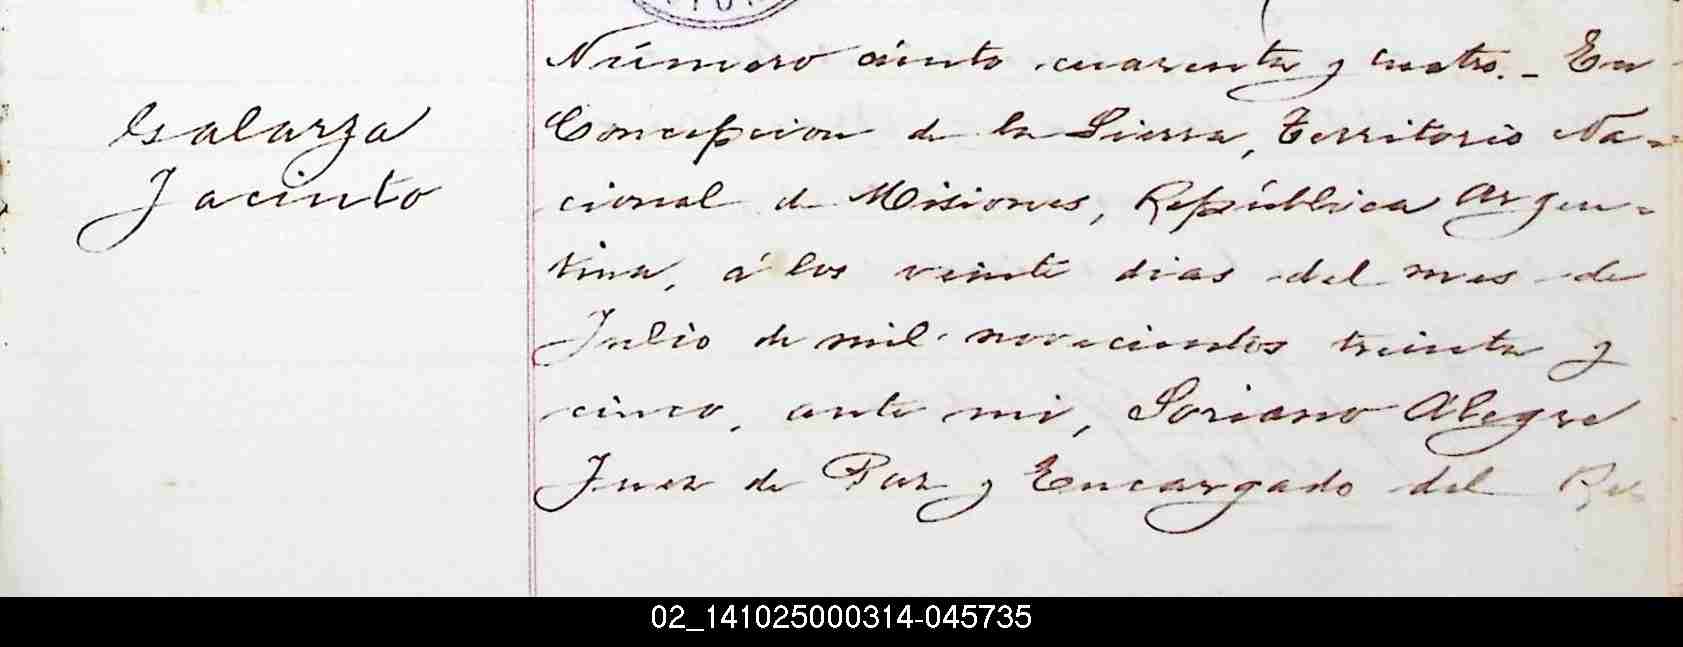 Galarza
Jacinto
Número ciento cuarenta y cuatro.- En
Concepcion de la Sierra, Territorio Na-
cional de Misiones, República Argen-
tina, á los veinte dias del mes de
Julio de mil novecientos treinta y
cinco, ante mi, Soriano Alegre
Juez de Paz y Encargado del Re
02_141025000314-045735